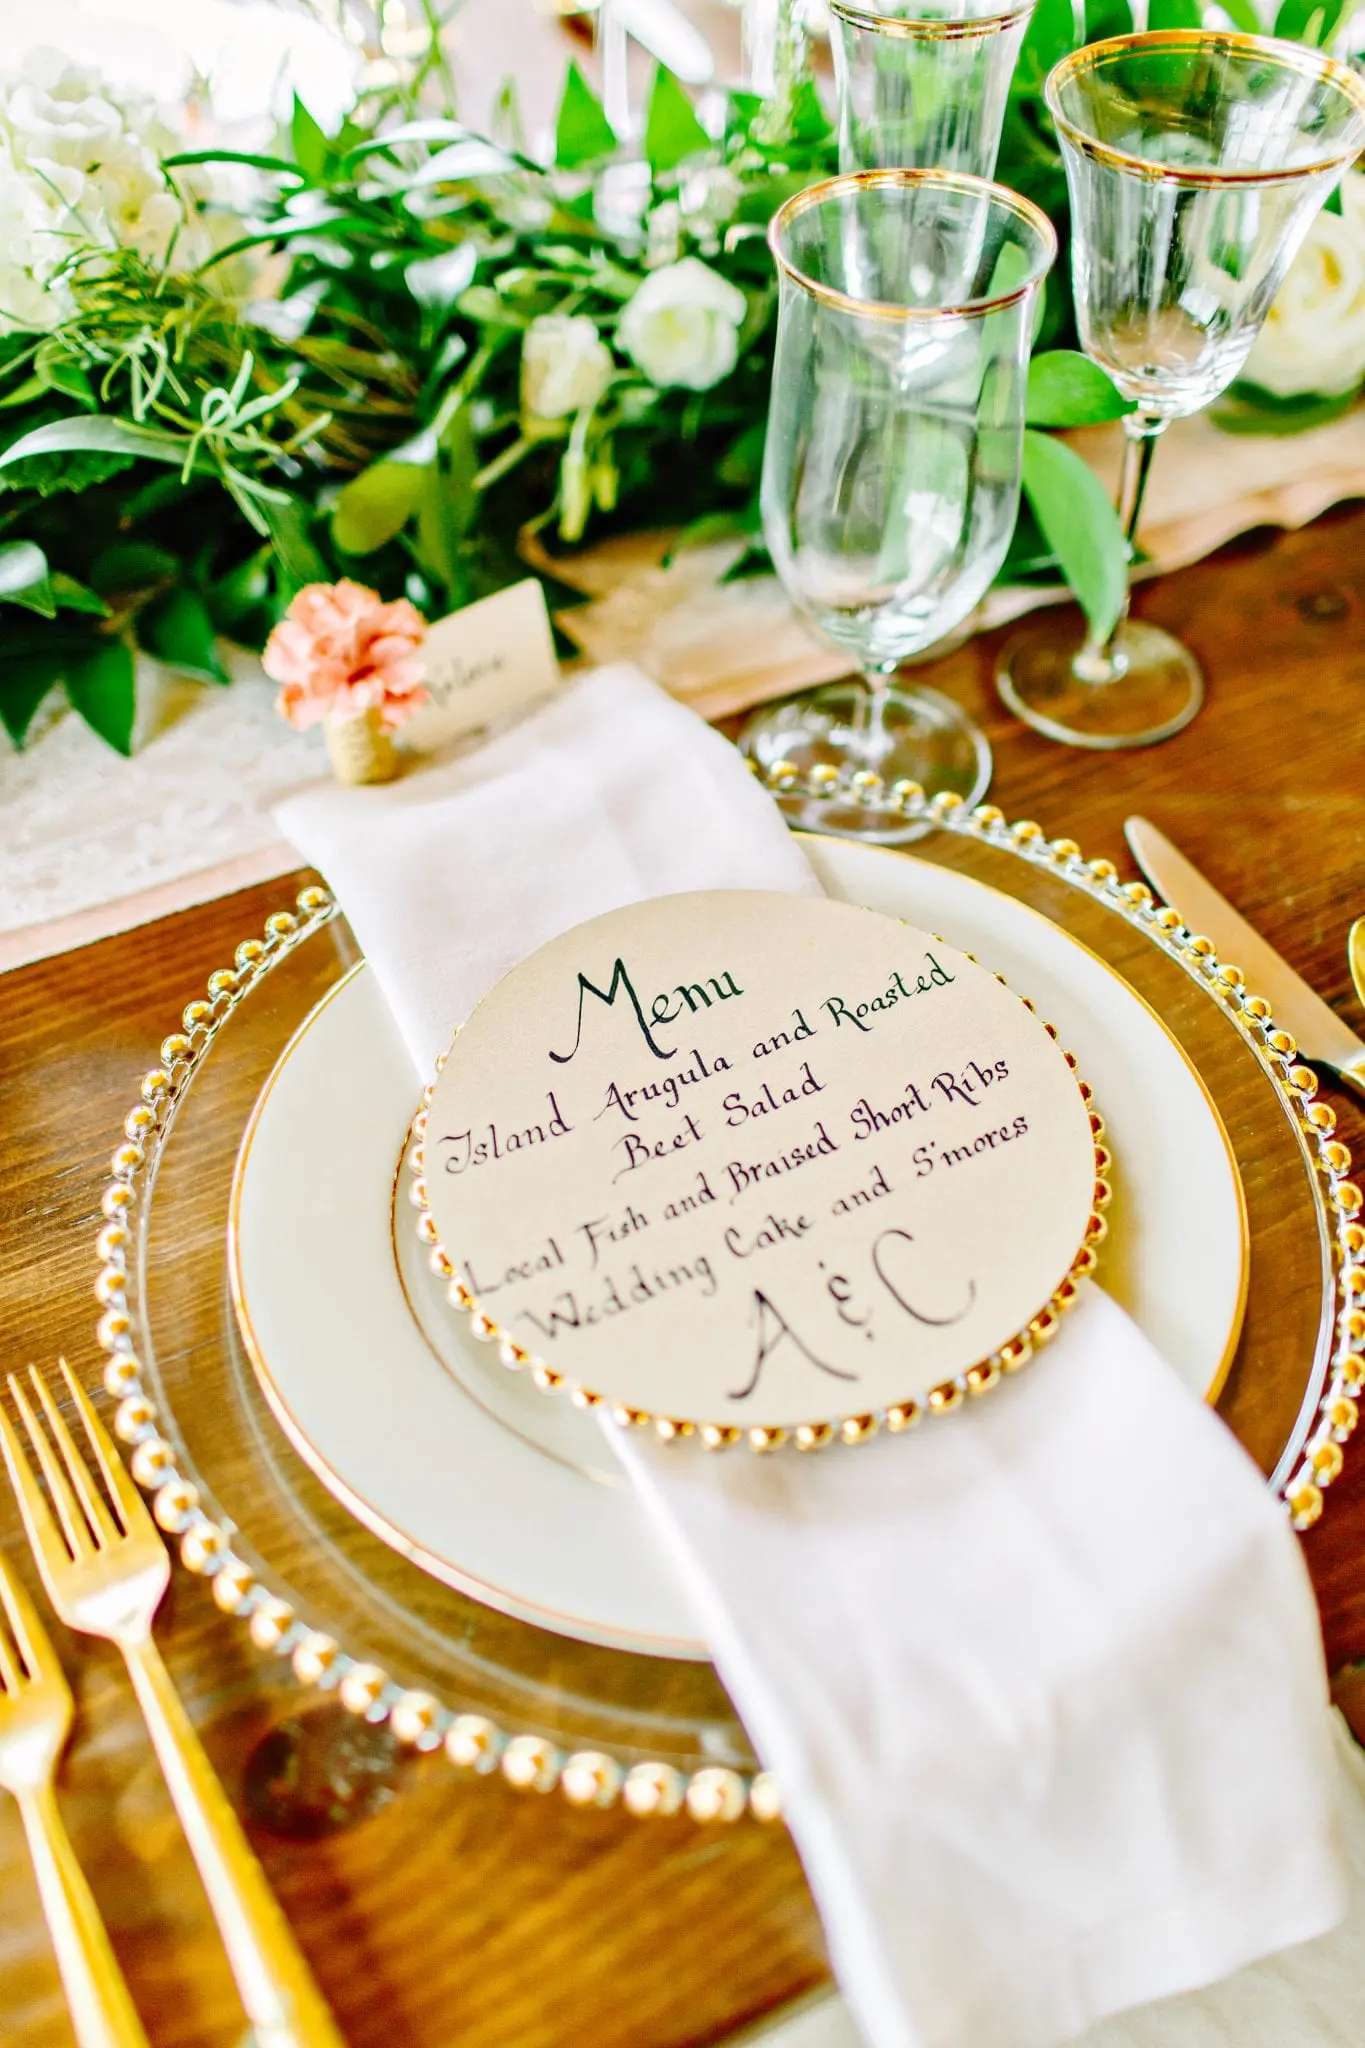 Menu
Island Arugula and Roasted
Beet Salad
Local Fish and Braised Short Ribs
Wedding Cake and S'mores
A & C